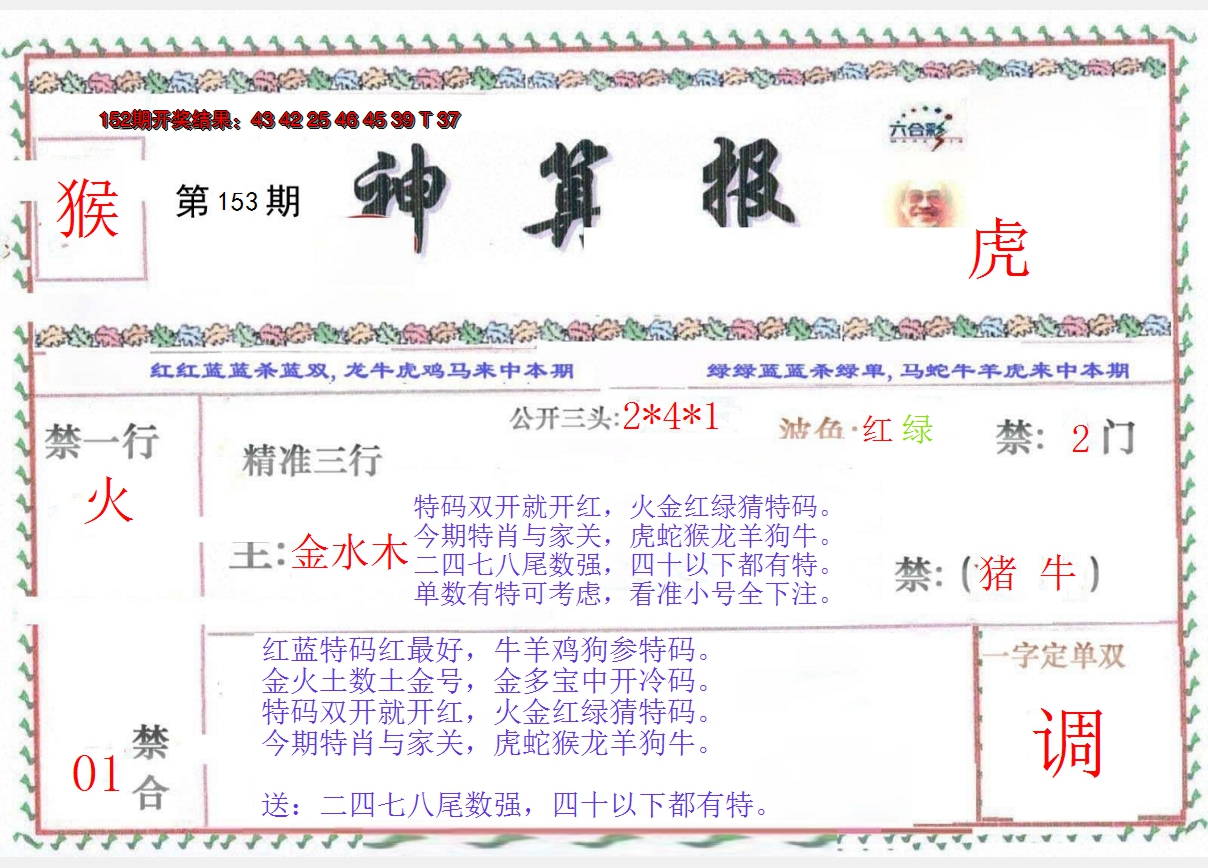 152期开奖结果：43 42 25 46 45 39 T 37
六合彩
猴
第153期
神算报
虎
红红蓝蓝杀蓝双,龙牛虎鸡马来中本期
绿绿蓝蓝杀绿单,马蛇牛羊虎来中本期
公开三头:2*4*1
波色:红 绿
禁一行
火
精准三行
禁: 2门
特码双开就开红，火金红绿猜特码。
今期特肖与家关，虎蛇猴龙羊狗牛。
二四七八尾数强，四十以下都有特。
单数有特可考虑，看准小号全下注。
主:金水木
禁:(猪 牛)
红蓝特码红最好，牛羊鸡狗参特码。
金火土数土金号，金多宝中开冷码。
特码双开就开红，火金红绿猜特码。
今期特肖与家关，虎蛇猴龙羊狗牛。
送：二四七八尾数强，四十以下都有特。
一字定单双
调
01
禁合